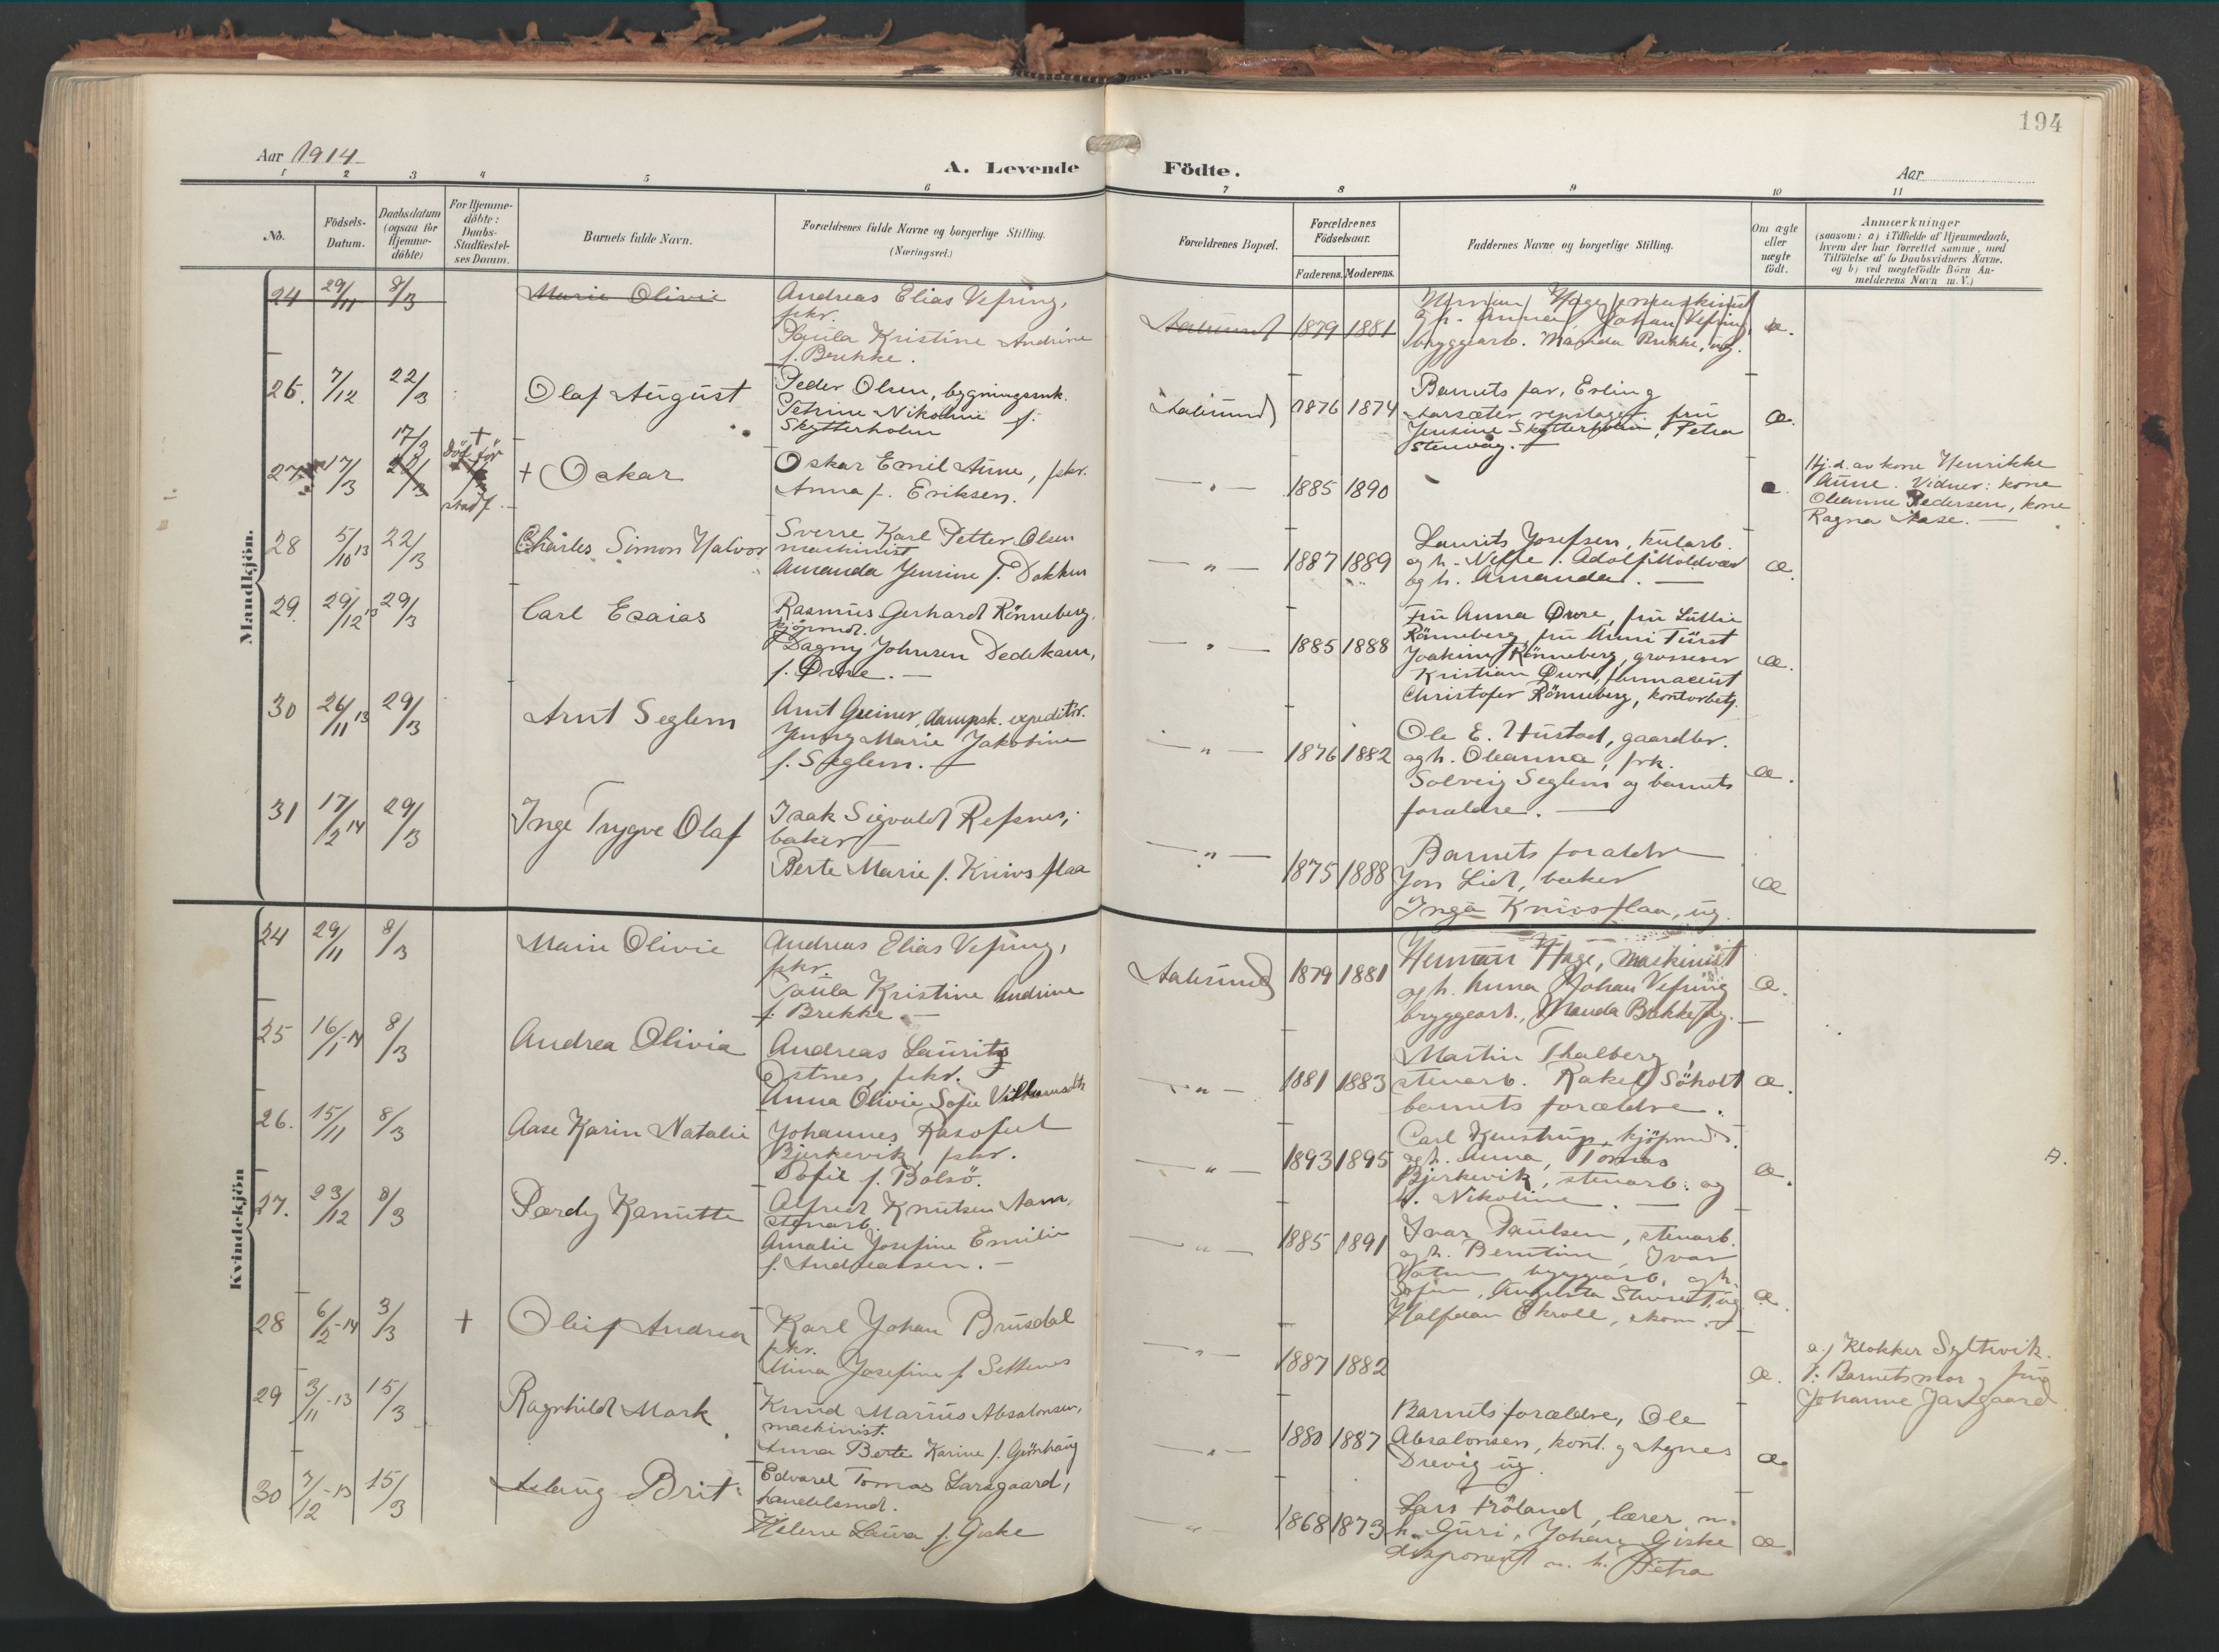 194
Aar 1914
A. Levende Födte.
Aar
1 2 3 4 5 6 7 8 9 10 11
No.
Födsels-
Datum.
Daabsdatum
(ogsaa for
Hjemme-
döbte)
For Hjemme-
döbte:
Daabs-
Stadfestel-
ses Datum.
Barnets fulde Navn.
Forældrenes fulde Navne og borgerlige Stilling.
(Næringsvei.)
Forældrenes Bopæl.
Forældrenes
Födselsaar.
Faderens. Moderens.
Faddernes Navne og borgerlige Stilling.
Om ægte
eller
uægte
födt.
Anmærkninger
(saasom: a) i Tilfælde af Hjemmedaab,
hvem der har forrettet samme, med
Tilföielse af to Daabsvidners Navne,
og b) ved uægtefödte Börn An-
melderens Navn m. V.)
Mandkjön.
24 29/11 8/3 Marie Olivie
Andreas Elias Vefring,
fskr.
Paula Kristine Andrine
f. Brekke.
Aalesund 1879 1881
Herman Hage, maskinist
og h. Anna, Johan Vefring
bryggearb. Manda Brekke, ug.
æ.
26. 7/12 22/3 Olaf August
Peder Olsen, bygningssnk.
Petrine Nikoline f.
Skytterholm
Aalesund 1876 1874
Barnets far, Erling
Aarsæter, repslager. fru
Jensine Skytterholm, Petra
Stenvåg.
æ.
27. 17/3 17/3 22/3 + Död før stadf. + Oskar
Oskar Emil Aune, fskr.
Anna f. Eriksen.
— " — 1885 1890
Hj.d. av kone Henrikke
Aune. Vidner: kone
Oleanne Pedersen, kone
Ragna Aase.
28 5/10 13 22/3 Charles Simon Halvor
Sverre Karl Petter Olsen
machinist
Amanda Jensine f. Dokken
— " — 1887 1889
Laurits Josefsen, kularb.
og h. Adolf Moldvær
og h. Amanda.
æ.
29. 29/12 13 29/3 Carl Esaias
Rasmus Gerhard Rönneberg,
kjöpmd.
Dagny Johnsen Dedekam,
f. Øwre.
— " — 1885 1888
Fru Anna Øwre, fru Lullie
Rönneberg, fru Anni Fürst
Joakim Rönneberg, grosserer
Kristian Øwre, farmaceut
Christofer Rönneberg, kontorbetj.
æ.
30 26/11 13 29/3 Arnt Seglem
Arnt Greiner, dampsk. expeditör.
Jenny Marie Jakobine
f. Seglem.
— " — 1876 1882
Ole E. Hustad, gaardbr.
og h. Oleanna, frk.
Solveig Seglem og barnets
forældre.
æ.
31 17/2 14 29/3 Inge Trygve Olaf
Isak Sigvald Refsnes,
baker
Berte Marie f. Knivsflaa
— " — 1875 1888
Barnets forældre
Jon Lid, baker
Inga Knivsflaa, ug.
æ
Kvindekjön
24 29/11 8/3 Marie Olivie
Andreas Elias Vefring,
fskr.
Paula Kristine Andrine
f. Brekke.
Aalesund 1879 1881
Herman Hage, maskinist
og h. Anna Johan Vefring
bryggearb., Manda Brekke ug.
æ.
25 16/1-14 8/3 Andrea Olivia
Andreas Lauritz
Østnes, fskr.
Anna Olivie Sofie
— " — 1881 1883
Martin Thalberg
stenarb. Rakel Söholt
barnets forældre.
æ.
26. 15/11 8/3 Aase Karin Natalie
Johannes
Bjerkevik, fskr.
Sofie f. Bolsö.
— " — 1893 1895
Carl kjöpmd.
og h. Anna, Tomas
Bjerkevik, stenarb. og
h. Nikoline.
æ.
27. 23/12 8/3 Pærdy Kanutte
Alfred Knutsen Aam,
stenarb.
Amalie Josefine Emilie
f. Andreassen.
— " — 1885 1891
Ivar Paulsen, stenarb.
og h. Berntine, Ivar
bryggearb. og h.
ug.
Halfdan Ekroll, skom.
æ.
28 6/2-14 3/3 + Oluf Andrea
Karl Johan Brusdal
fskr.
Mina Josefine f.
— " — 1887 1882
æ.
a.) Klokker Syltevik.
V: Barnets mor og fru
Johanne
29 3/11-13 15/3 Ragnhild Mork
Knud Marius Absalonsen,
machinist.
Anna Berte Karine f. Grönhaug
— " — 1880 1887
Barnets forældre, Ole
Absalonsen, kont. og Agnes
Drevig ug.
æ
30 7/12-13 15/3 Aslaug Brit
Edvard Tomas Larsgaard,
handelsmd.
Helene Laura f. Giske
— " — 1868 1873
Lars Fröland, lærer m.
h. Guri, Johan Giske
disponent m. h. Petra
æ.